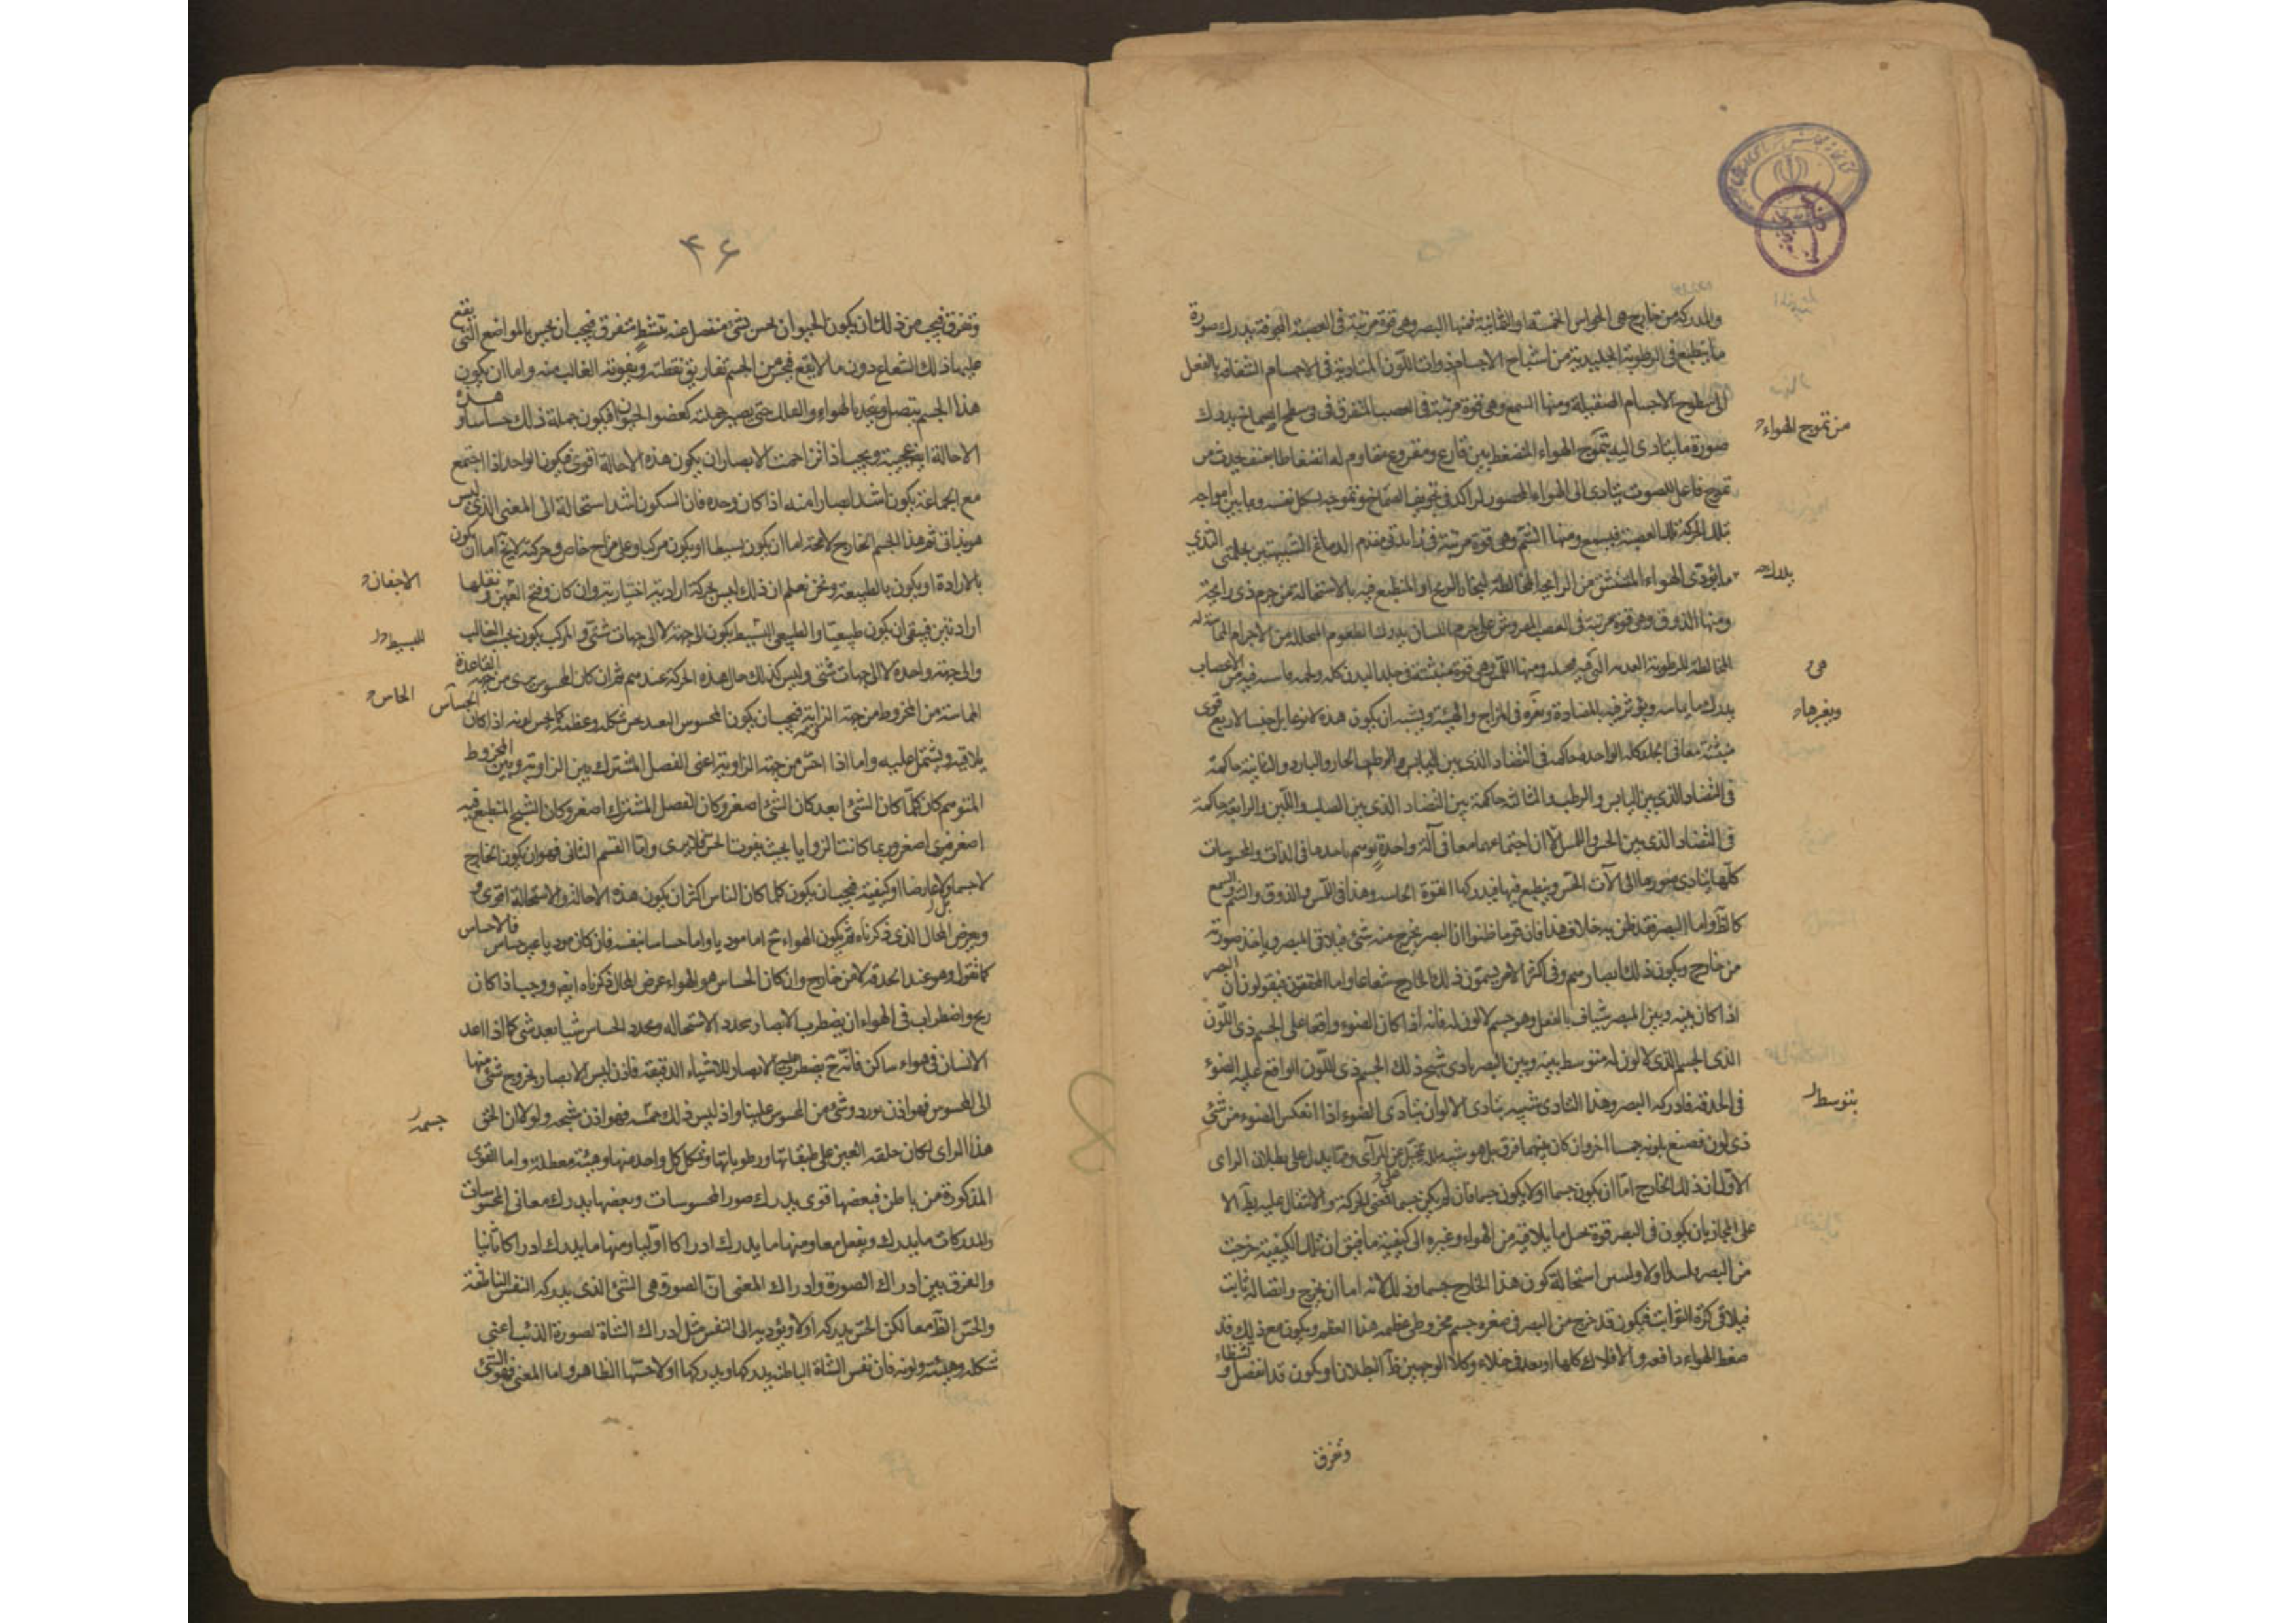 والمدركة من خارج هي الحواس الخمسة او الثمانية فمنها البصر وهي قوة مرتبة في العصبة المجوفة يدرك صورة
ما ينطبع في الرطوبة الجليدية من اشباح الاجسام ذوات اللون المتادية في الاجسام الشفافة بالفعل
الى سطوح الاجسام الصقيلة ومنها السمع وهي قوة مرتبة في العصب المتفرق في سطح الصماخ يدرك
من تموج الهواء
صورة ما يتادى اليه بتموج الهواء المنضغط بين قارع ومقروع مقاوم له انضغاطا بعنف يحدث من
تموج فاعل للصوت يتادى الى الهواء المحصور الراكد في تجويف الصماخ وتموجه بشكل نفسه ويماس امواجه
تلك الحركة تلك العصبة فيسمع ومنها الشم وهي قوة مرتبة في زايدتي مقدم الدماغ الشبيهتين بحلمتي الثدي
يدرك
ما يؤدى الهواء المستنشق من الرايحة المخالطة لبخار الريح او المنطبع فيه بالاستحالة من جرم ذي رايحة
ومنها الذوق وهي قوة مرتبة في العصب المفروش على جرم اللسان يدرك الطعوم المتحللة من الاجرام المماسة له
المخالطة للرطوبة العذبة التي فيه محيلة ومنها اللمس وهي قوة منبثة في جلد البدن كله ولحمه فاسه فيه من الاعصاب
هي
وبغيرها
يدرك ما يماسه ويوثر فيه بالمضادة ويغيره في المزاج والهيئة ويشبه ان يكون هذه لا نوعا بل جنسا لاربع قوى
منبثة معا في الجلد كله الواحدة حاكمة في التضاد الذي بين الحار والبارد والثانية حاكمة
في التضاد الذي بين اليابس والرطب والثالثة حاكمة بين التضاد الذي بين الصلب واللين والرابعة حاكمة
في التضاد الذي بين الخشن والاملس الا ان اجتماعها معا في آلة واحدة يوهم تاحدها في الذات والمحسوسات
كلها يتادى صورها الى الآت الحس وينطبع فيها فيدركها القوة الحاسة وهذا في اللمس والذوق والشم والسمع
كالظاهر واما البصر فقد ظن به خلاف هذا فان قوما ظنوا ان البصر يخرج منه شئ فيلاقي المبصر وياخذ صورته
من خارج ويكون ذلك ابصارهم وفي اكثر الامر يسمون ذلك الخارج شعاعا واما المحققون فيقولون ان البصر
اذا كان بينه وبين المبصر شفاف بالفعل وهو جسم لا لون له فانه اذا كان الضوء واقعا على الجسم ذي اللون
الذي الجسم الذي لا لون له متوسط بينه وبين البصر تادى شبح ذلك الجسم ذي اللون الواقع عليه الضوء
بتوسط
في الحدقة فادركه البصر وهذا التادي شبيه بتادي الالوان بتادي الضوء اذا انعكس الضوء من شئ
ذي لون فصبغ بلونه جسما اخر وان كان بينهما فرق بل هو شبيه بما يتخيل من المرآي ومما يدل على بطلان الراي
الاول ان ذلك الخارج اما ان يكون جسما او لا يكون جسما فان لم يكن جسما فمعنى الحركة والانتقال عليه بط الا
على المجاز بان يكون في البصر قوة تحيل ما يلاقيه من الهواء وغيره الى كيفية ما فيق ان تلك الكيفية خرجت
من البصر اولا وليس استحالة كون هذا الخارج جسما وذلك لانه اما ان يخرج واتصاله ثابت
فيلاقي كرة الثوابت فيكون قد خرج من البصر في صغره جسم مخروطي عظمه هذا العظم ويكون مع ذلك قد
ضغط الهواء دافعه والافلاك كلها او يعد في خلاء وكلا الوجهين ظ البطلان او يكون قد انفصل وتشظى
وتفرق
۴۶
وتفرق فيجب من ذلك ان يكون الحيوان يحس بشئ منفصل عنه متشظ متفرق فيجب ان يحس بالمواضع التي يقع
عليها ذلك الشعاع دون ما لا يقع فيحس من الجسم تفاريق نقطته ويفوته الغالب منه واما ان يكون
هذا الجسم يتصل ويتحد بالهواء والفلك حتى يصير جملته كعضو الحيوان فيكون جملة ذلك حساسا وهذه
الاحالة ايضا عجيبة ويجب اذا تزاحمت الابصار ان يكون هذه الاحالة اقوى فيكون الواحد اذا اجتمع
مع الجماعة يكون اشد ابصارا منه اذا كان وحده فان السكون اشد استحالة الى المعنى الذي ليس
هو بذاتي ثم هذا الجسم الخارج لا محة اما ان يكون بسيطا او يكون مركبا وعلى مزاج خاص وحركته لا يخ اما ان يكون
الاجفان
بالارادة او يكون بالطبيعة ونحن نعلم ان ذلك ليس بحركة ارادية اختيارية وان كان فتح العين ونقلها
للبسيط
ارادتين فيبقى ان يكون طبيعيا والطبيعي البسيط يكون الى جهة لا الى جهات شتى والمركب يكون بحسب الغالب
والى جهة واحدة لا الى جهات شتى وليس كذلك حال هذه الحركة عندهم ثم ان كان المحسوس يرى من جهة القاعدة
الحاس
المماسة من المخروط من جهة الزاوية فيجب ان يكون المحسوس البعيد يحس شكله وعظمه كما يحس لونه اذا كان الحساس
يلاقيه ويشتمل عليه واما اذا احس من جهة الزاوية اعني الفصل المشترك بين الزاوية وبين المخروط
المتوهم كان كلما كان الشئ ابعد كان الشئ اصغر وكان الفصل المشترك اصغر وكان الشبح المنطبع فيه
اصغر فيرى اصغر وربما كانت الزوايا بحيث يفوت الحس فلا يرى واما القسم الثاني فهو ان يكون الخارج
لا جسما بل عارضا او كيفية فيجب ان يكون كلما كان الناس اكثر ان يكون هذه الاحالة والاستحالة اقوى و
ويعرض المحال الذي ذكرناه ثم يكون الهواء ح اما موديا واما حساسا بنفسه فان كان موديا غير حساس فالاحساس
كما نقول وهو عند الحدقة لا من خارج وان كان الحساس هو الهواء عرض المحال ذكرناه ايضا ووجب اذا كان
ريح واضطراب في الهواء ان يضطرب الابصار بتجدد الاستحالة وتجدد الحساس شيئا بعد شئ كما اذا عدا
الانسان في هواء ساكن فانه ح يضطرب عليه الابصار للاشياء الدقيقة فاذن ليس الابصار بخروج شئ منها
جسمه
الى المحسوس فهو اذن بورود شئ من المحسوس علينا واذ ليس ذلك جسمه فهو اذن شبحه ولولا ان الحق
هذا الراي لكان خلقة العين على طبقاتها ورطوباتها وشكل كل واحد منها وهيئته معطلة واما القوى
المذكورة من باطن فبعضها قوى يدرك صور المحسوسات وبعضها يدرك معاني المحسوسات
والمدركات ما يدرك ويفعل معا ومنها ما يدرك ادراكا اوليا ومنها ما يدرك ادراكا ثانيا
والفرق بين ادراك الصورة وادراك المعنى ان الصورة هي الشئ الذي يدركه النفس الناطقة
والحس الظاهر معا لكن الحس يدركه اولا ويؤديه الى النفس مثل ادراك الشاة لصورة الذئب اعني
شكله وهيئته ولونه فان نفس الشاة الباطنة يدركها ويدركها اولا حسها الظاهر واما المعنى فهو الشئ